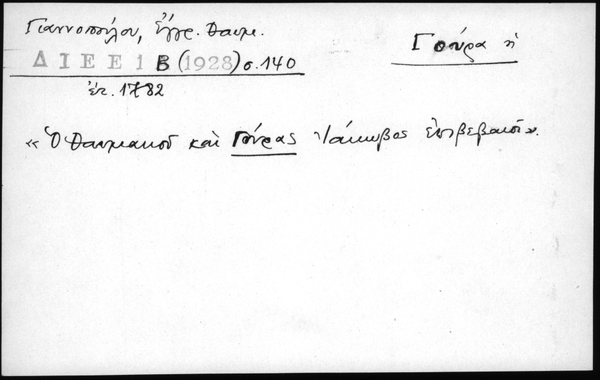 Γιαννοπούλου, Ἔγγρ. Θαυμ.
Γούρα ἡ
ΔΙΕΕ 1 Β (1928) σ. 140
ἐτ. 1782
«Ὁ Θαυμακοῦ καὶ Γούρας Ἰάκωβος ἐπιβεβαιοῖ».